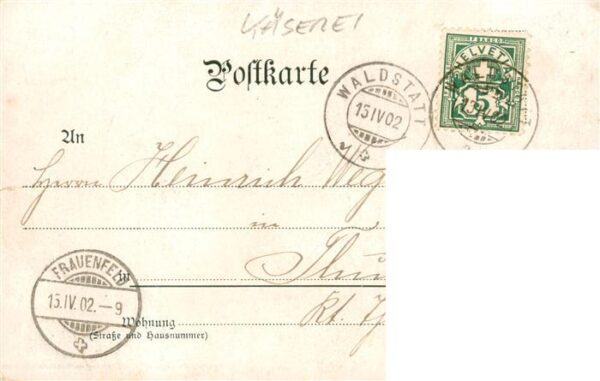 KÄSEREI
Postkarte
FRANCO
HELVETIA
5
WALDSTATT
15 IV 02
An
Herrn Heinrich Weg
in
FRAUENFELD
15. IV. 02. – 9
in Thu
Kt. Th
Wohnung
(Straße und Hausnummer)